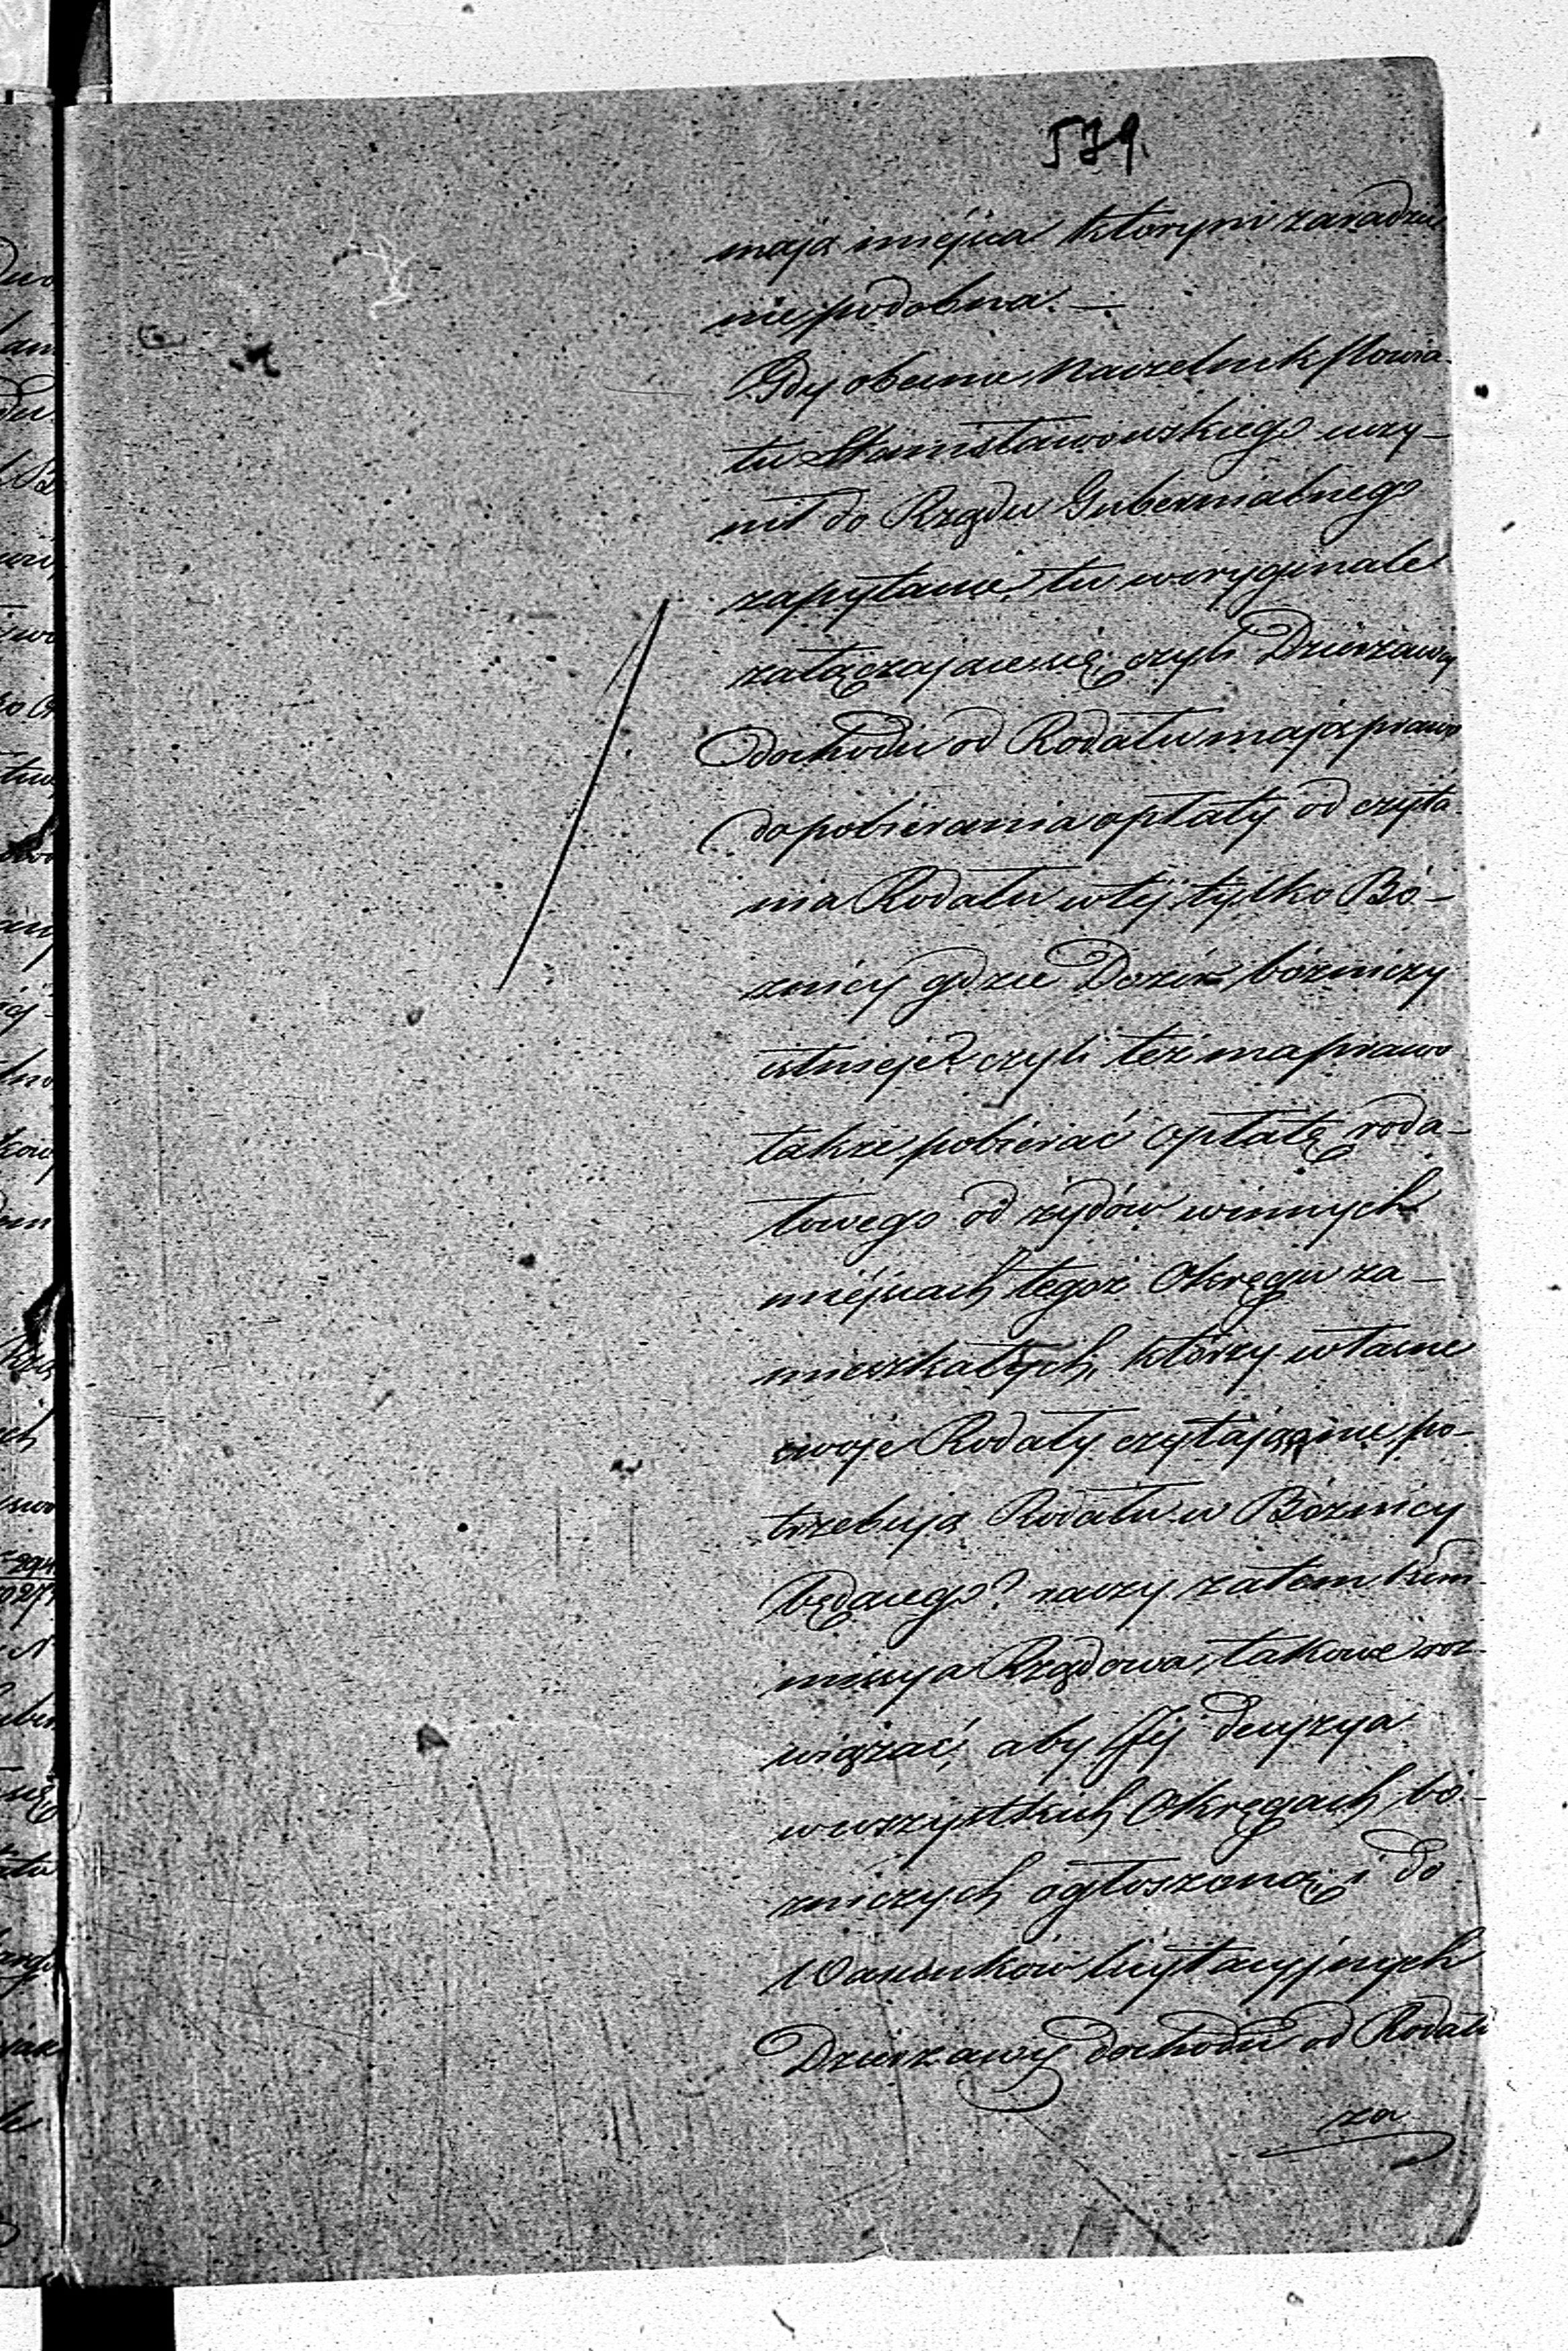 579.
mają miejsca którym zaradzić
nie podobna. —
Gdy obecnie Naczelnik Powia-
tu Stanisławowskiego uczy-
nił do Rządu Gubernialnego
zapytanie, tu woryginale
załączające się; czyli Dzierżawcy
dochodu od Rodału mają prawo
do pobierania opłaty od czyta
nia Rodału wtéj tylko Bó-
żnicy gdzie Dozór bożniczy
istnieje? czyli też ma prawo
także pobierać opłatę roda-
łowego od żydów winnych
miéjscach tegoż Okręgu za-
mieszkałych, którzy własne
swoje Rodały czytając nie po-
trzebują Rodału w Bóżnicy
będącego? raczy zatem Kom-
missya Rządowa, takowe roz-
wiązać, aby Jéj decyzya
wewszystkich Okręgach bó-
żniczych ogłoszoną i do
Warunków licytacyjnych
Dzierżawy dochodu od Rodału
za